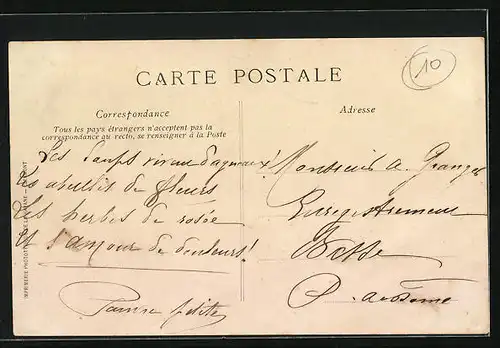 CARTE POSTALE
10
Correspondance
Tous les pays étrangers n'acceptent pas la
correspondance au recto, se renseigner à la Poste
Adresse
Les loups vivent d'agneaux!
Les abeilles de fleurs
Les herbes de rosée
Et l'amour de douleurs!
petite
Monsieur A. Granger
Enregistrement
P. de Dôme
IMPRIMERIE